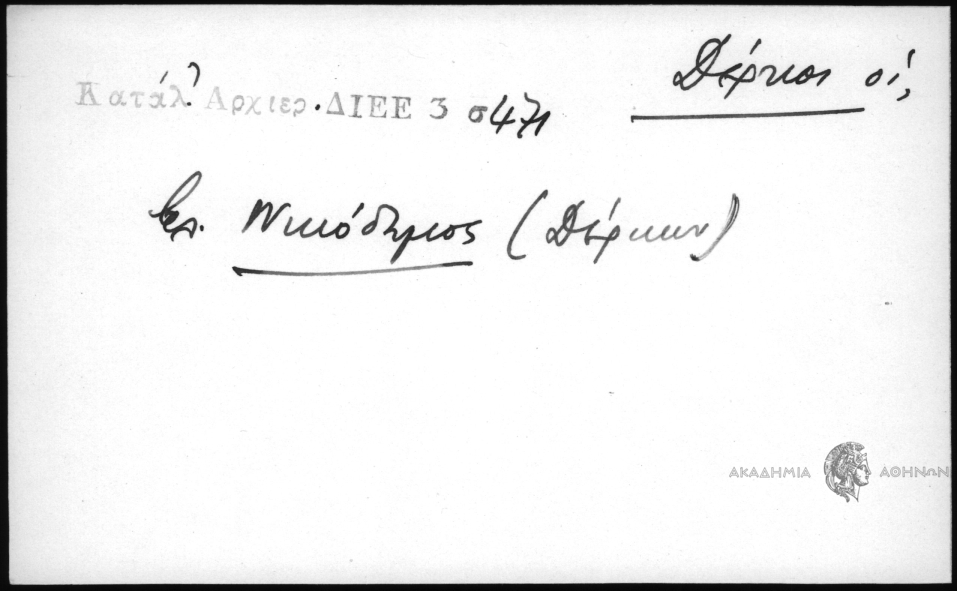 Δέρκοι οἱ,
Κατάλ. Ἀρχιερ. ΔΙΕΕ 3 σ 471
βλ. Νικόδημος (Δέρκων)
ΑΚΑΔΗΜΙΑ ΑΘΗΝΩΝ